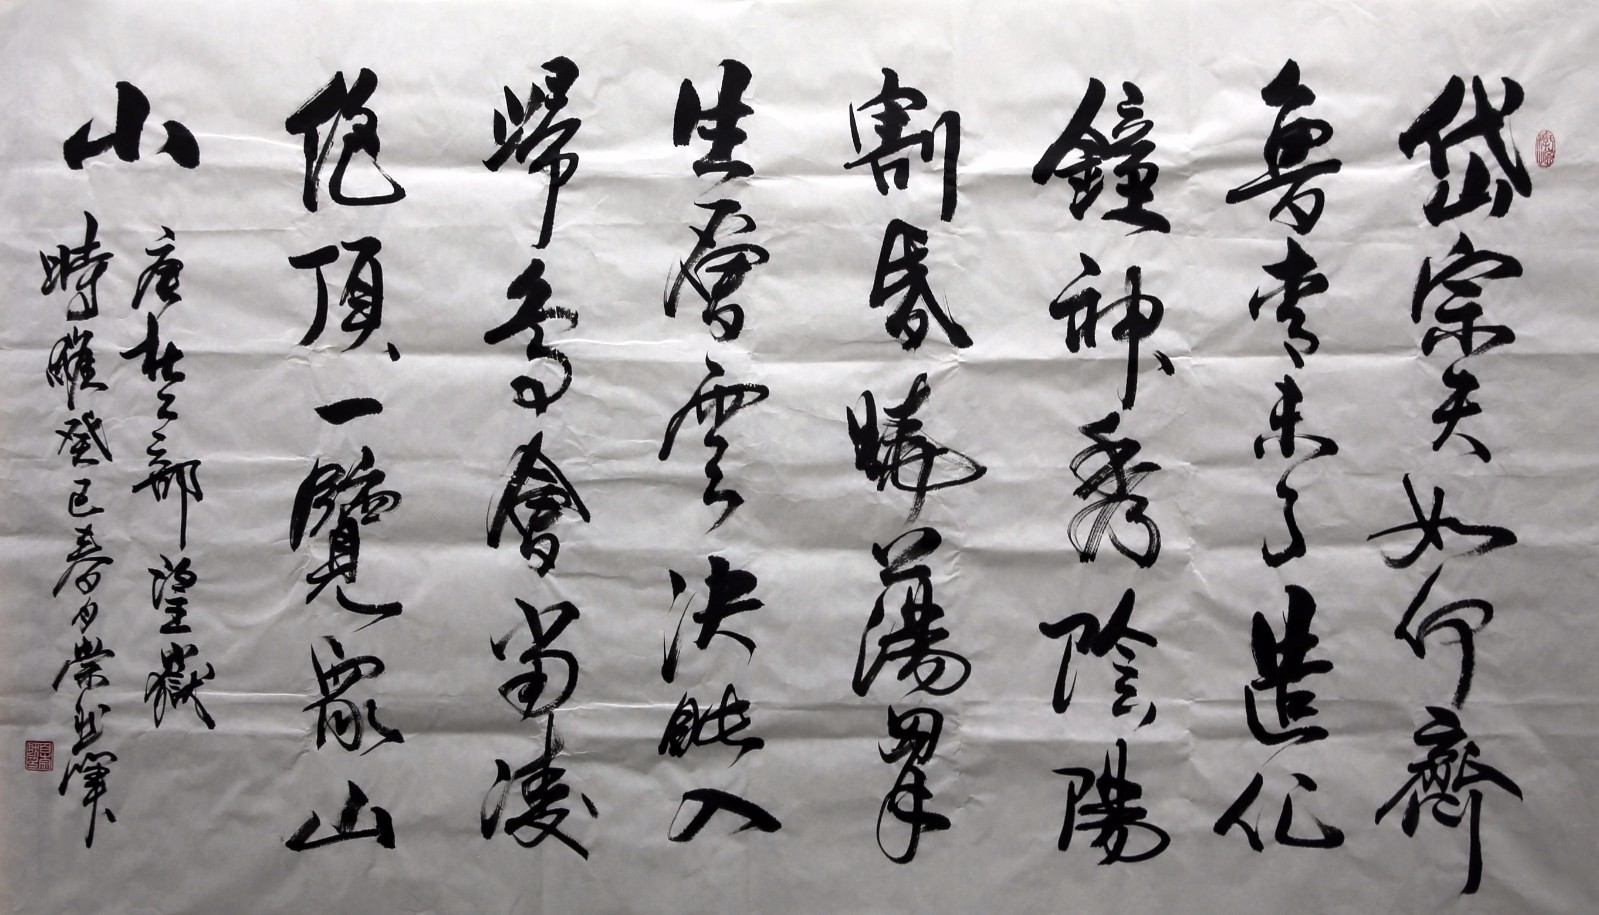 岱宗夫如何齊
魯青未了造化
鐘神秀陰陽
割昏曉蕩胸
生層雲決眥入
歸鳥會當凌
絕頂一覽眾山
小
唐杜工部望嶽
時維癸巳春月榮